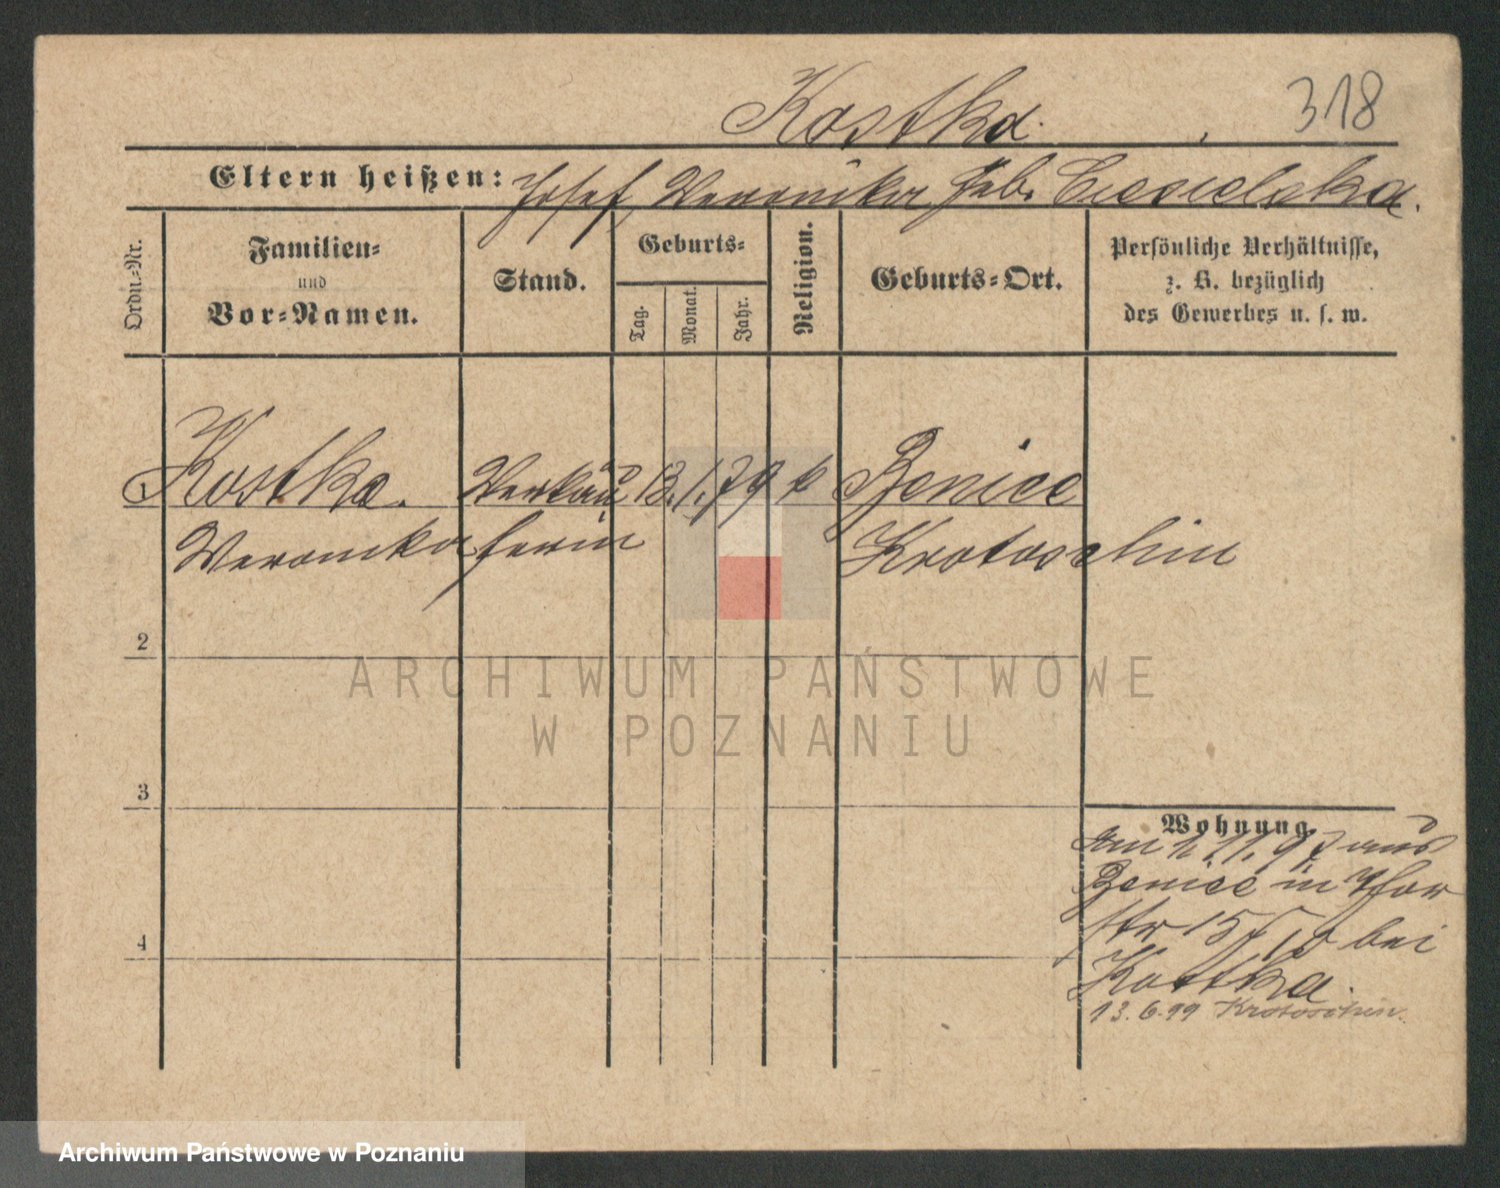 Kostka.
318
Eltern heißen: Josef, Veronika geb. Ciesielska.
Ordn.-Nr.
Familien-
und
Vor-Namen.
Stand.
Geburts-
Tag.
Monat.
Jahr.
Religion.
Geburts-Ort.
Persönliche Verhältnisse,
z. B. bezüglich
des Gewerbes u. s. w.
Kostka. Verkäu 13. 1. 79 k Benice
Veronika ferin Krotoschin
2
3
4
Wohnung
am 1.11.97 aus
Benice in
str 15 bei
Kostka.
13.6.99 Krotoschin.
ARCHIWUM PAŃSTWOWE
W POZNANIU
Archiwum Państwowe w Poznaniu